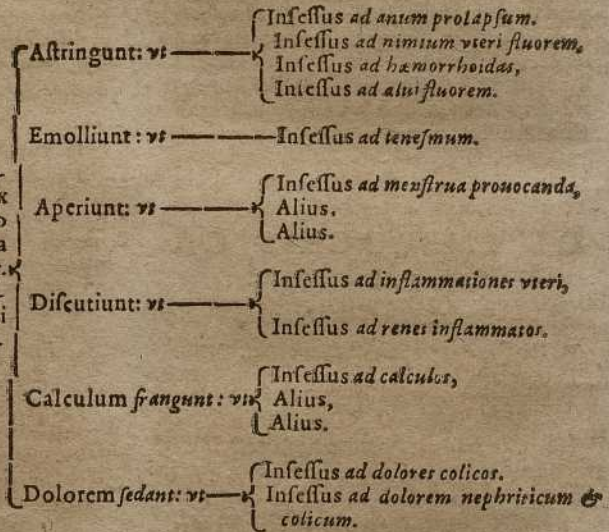 Inſeſſus ad anum prolapſum.
Aſtringunt: vt
Inſeſſus ad nimium vteri fluorem,
Inſeſſus ad hæmorrhoidas,
Inſeſſus ad alui fluorem.
Emolliunt: vt
Inſeſſus ad teneſmum.
Aperiunt: vt
Inſeſſus ad menſtrua prouocanda,
Alius.
Alius.
Diſcutiunt: vt
Inſeſſus ad inflammationes vteri,
Inſeſſus ad renes inflammatos.
Calculum frangunt: vt
Inſeſſus ad calculos,
Alius,
Alius.
Dolorem ſedant: vt
Inſeſſus ad dolores colicos.
Inſeſſus ad dolorem nephriticum &
colicum.